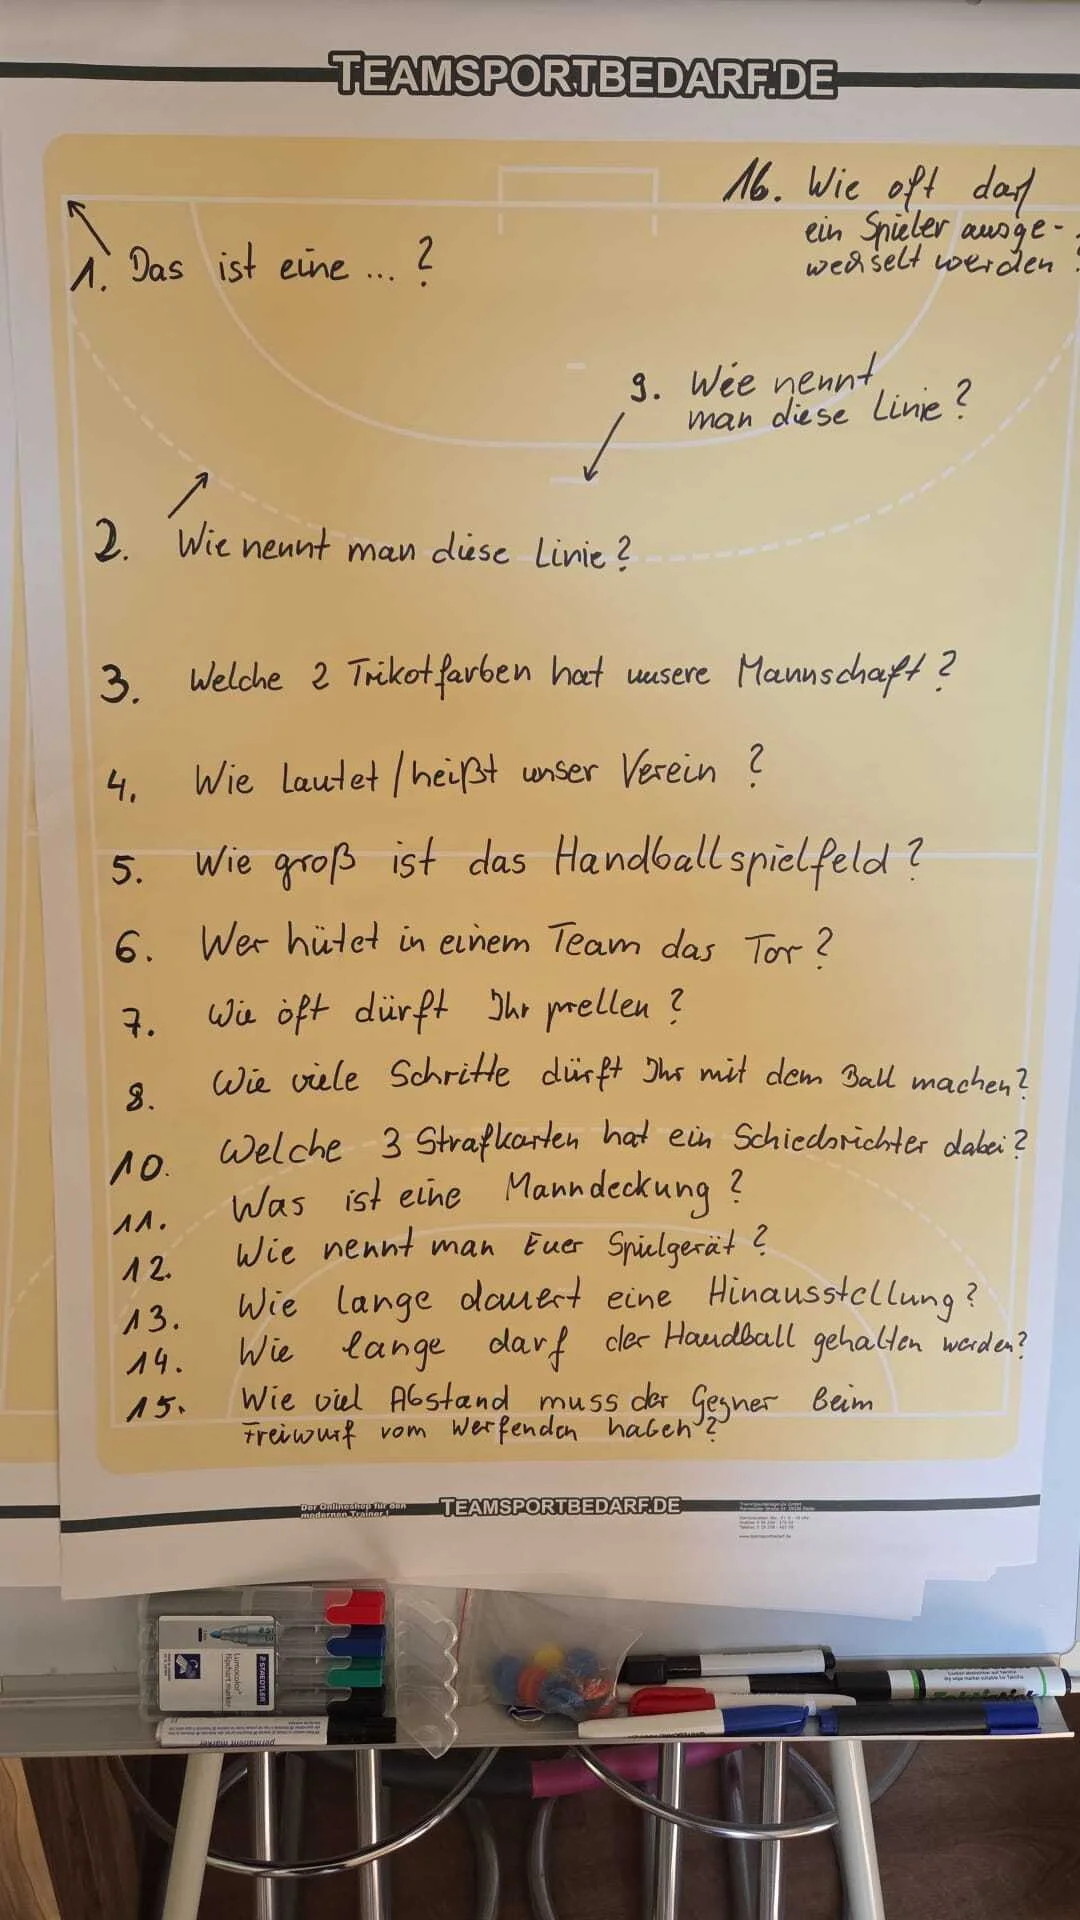 TEAMSPORTBEDARF.DE
16. Wie oft darf
ein Spieler ausge-
wechselt werden ?
1. Das ist eine ... ?
9. Wie nennt
man diese Linie ?
2. Wie nennt man diese Linie ?
3. Welche 2 Trikotfarben hat unsere Mannschaft ?
4. Wie lautet / heißt unser Verein ?
5. Wie groß ist das Handballspielfeld ?
6. Wer hütet in einem Team das Tor ?
7. Wie oft dürft Ihr prellen ?
8. Wie viele Schritte dürft Ihr mit dem Ball machen ?
10. Welche 3 Strafkarten hat ein Schiedsrichter dabei ?
11. Was ist eine Manndeckung ?
12. Wie nennt man Euer Spielgerät ?
13. Wie lange dauert eine Hinausstellung ?
14. Wie lange darf der Handball gehalten werden ?
15. Wie viel Abstand muss der Gegner Beim
Freiwurf vom Werfenden haben ?
Der Onlineshop für den
modernen Trainer !
TEAMSPORTBEDARF.DE
STAEDTLER
Lumocolor
flipchart marker
permanent marker